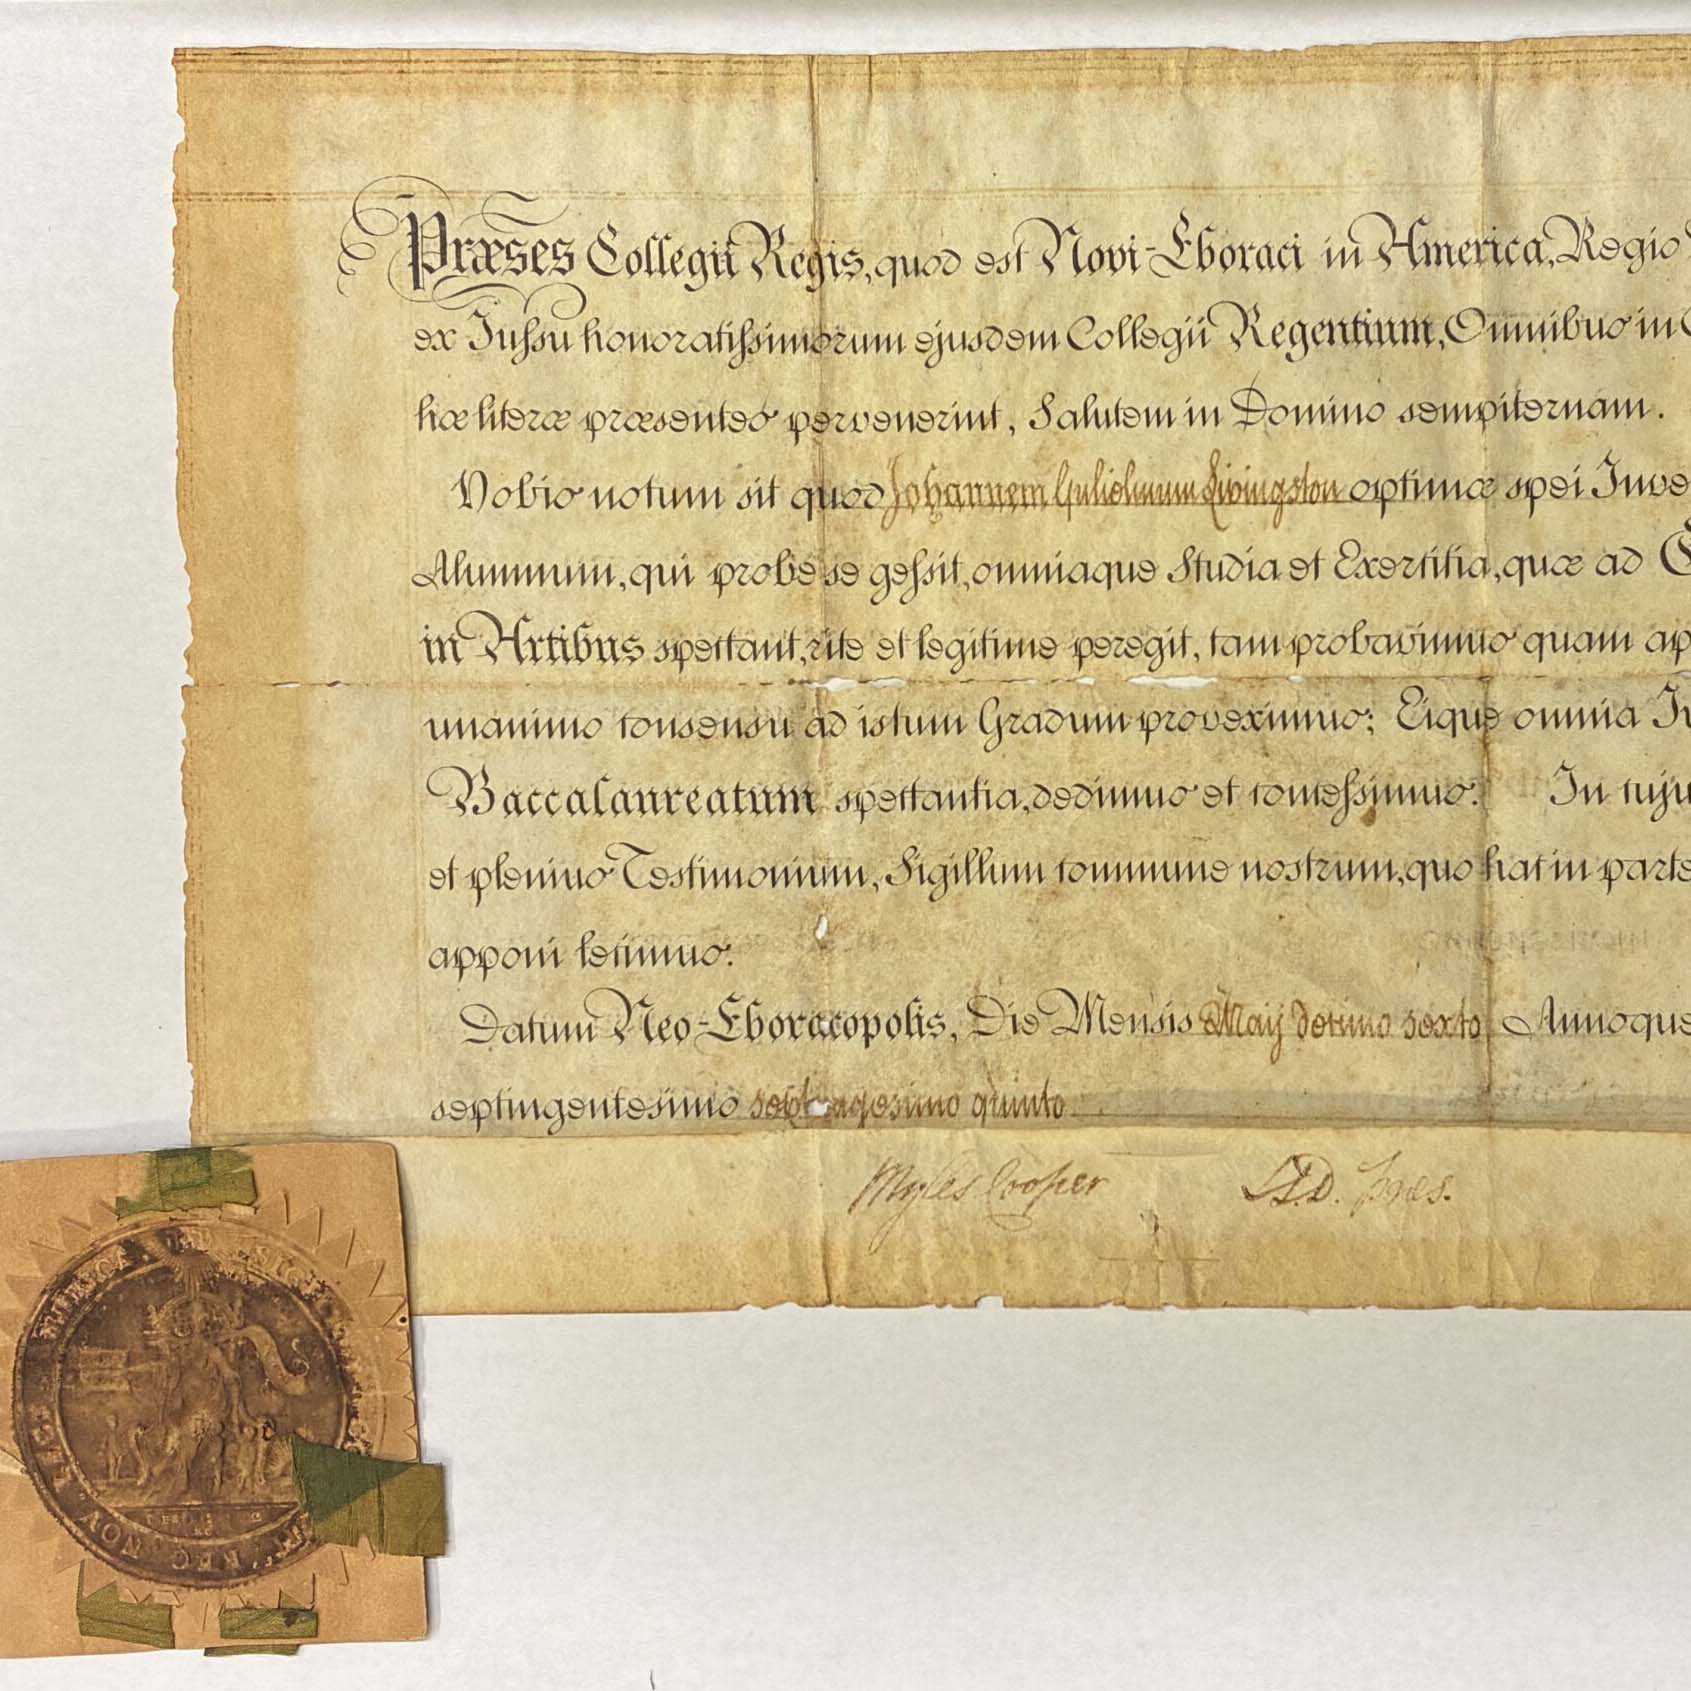 Præses Collegii Regis, quod est Novi-Eboraci in America, Regio
ex Jussu honoratissimorum ejusdem Collegii Regentium, Omnibus in
hæ literæ præsentes pervenerint, Salutem in Domino sempiternam.
Vobis notum sit quod Johannem Gulielmum Livingston optimæ spei Juve
Alumnum, qui probe se gessit, omniaque Studia et Exercitia, quæ ad
in Artibus spectant, rite et legitime peregit, tam probavimus quam ap
unanimo consensu ad istum Gradum proveximus; Eique omnia Ju
Baccalaureatum spectantia, dedimus et concessimus. In cuju
et plenius Testimonium, Sigillum commune nostrum, quo hac in parte
apponi fecimus.
Datum Neo-Eboracopolis, Die Mensis Maij decimo sexto Annoque
septingentesimo septuagesimo quinto
Myles Cooper LL.D. Præs.